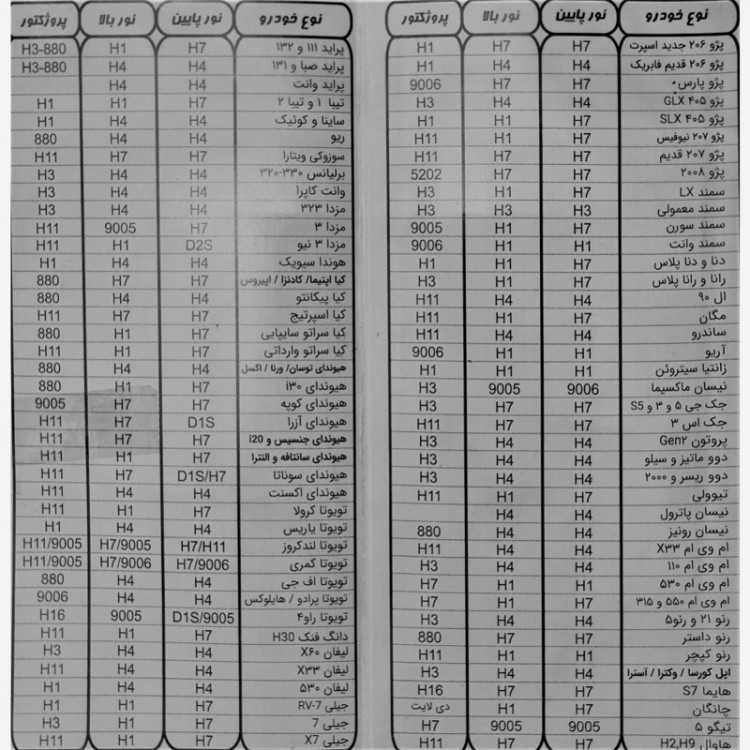 نوع خودرو نور پایین نور بالا پروژکتور
پژو ۲۰۶ جدید اسپرت H7 H7 H1
پژو ۲۰۶ قدیم فابریک H4 H4 H1
پژو پارس H7 H7 9006
پژو ۴۰۵ GLX H4 H4 H3
پژو ۴۰۵ SLX H7 H1 H1
پژو ۲۰۷ نیوفیس H7 H1 H11
پژو ۲۰۷ قدیم H7 H7 H11
پژو ۲۰۰۸ H7 H7 5202
سمند LX H7 H1 H3
سمند معمولی H3 H3 H3
سمند سورن H7 H1 9005
سمند وانت H1 H1 9006
دنا و دنا پلاس H7 H1 H1
رانا و رانا پلاس H7 H1 H3
ال ۹۰ H4 H4 H11
مگان H7 H1 H11
ساندرو H4 H4 H11
آریو H1 H1 9006
زانتیا سیتروئن H1 H1 H1
نیسان ماکسیما 9006 9005 H3
جک جی ۵ و ۳ و S5 H7 H7 H3
جک اس ۳ H7 H7 H11
پروتون Gen۲ H4 H4 H3
دوو ماتیز و سیلو H4 H4 H3
دوو ریسر و ۲۰۰۰ H4 H4 H3
تیوولی H7 H1 H11
نیسان پاترول H4 H4
نیسان رونیز H4 H4 880
ام وی ام X۳۳ H4 H4 H11
ام وی ام ۱۱۰ H4 H4 H3
ام وی ام ۵۳۰ H1 H1 H7
ام وی ام ۵۵۰ و ۳۱۵ H7 H1 H7
رنو ۲۱ و رنو۵ H4 H4 H3
رنو داستر H7 H7 880
رنو کپچر H1 H1 H11
اپل کورسا / وکترا / آسترا H4 H4 H3
هایما S7 H7 H7 H16
چانگان H7 H1 دی لایت
تیگو ۵ 9005 9005 H7
هاوال H2,H9 H7 H7 H11
نوع خودرو نور پایین نور بالا پروژکتور
پراید ۱۱۱ و ۱۳۲ H7 H1 H3-880
پراید صبا و ۱۳۱ H4 H4 H3-880
پراید وانت H4 H4
تیبا ۱ و تیبا ۲ H7 H1 H1
ساینا و کوئیک H4 H4 H1
ریو H4 H4 880
سوزوکی ویتارا H7 H7 H11
برلیانس ۳۳۰-۳۲۰ H4 H4 H3
وانت کاپرا H4 H4 H3
مزدا ۳۲۳ H4 H4 H3
مزدا ۳ H7 9005 H11
مزدا ۳ نیو D2S H1 H11
هوندا سیویک H4 H4 H1
کیا اپتیما/ کادنزا / اپیروس H7 H7 880
کیا پیکانتو H4 H4 880
کیا اسپرتیج H7 H7 H11
کیا سراتو سایپایی H7 H1 880
کیا سراتو وارداتی H7 H1 H11
هیوندای توسان/ ورنا / اکسل H4 H4 880
هیوندای i۳۰ H7 H1 880
هیوندای کوپه H7 H7 9005
هیوندای آزرا D1S H7 H11
هیوندای جنسیس و i20 H7 H7 H11
هیوندای سانتافه و النترا H7 H1 H11
هیوندای سوناتا D1S/H7 H7 H11
هیوندای اکسنت H4 H4 H11
تویوتا کرولا H7 H1 H11
تویوتا یاریس H4 H4 H1
تویوتا لندکروز H7/H11 H7/9005 H11/9005
تویوتا کمری H7/9006 H7/9006 H11/9005
تویوتا اف جی H4 H4 880
تویوتا پرادو / هایلوکس H4 H4 9006
تویوتا راو۴ D1S/9005 9005 H16
دانگ فنگ H30 H7 H1 H11
لیفان X۶۰ H4 H4 H3
لیفان X۳۳ H4 H4 H11
لیفان ۵۳۰ H4 H4 H1
جیلی RV-7 H7 H1 H1
جیلی 7 H7 H1 H3
جیلی X7 H7 H1 H11